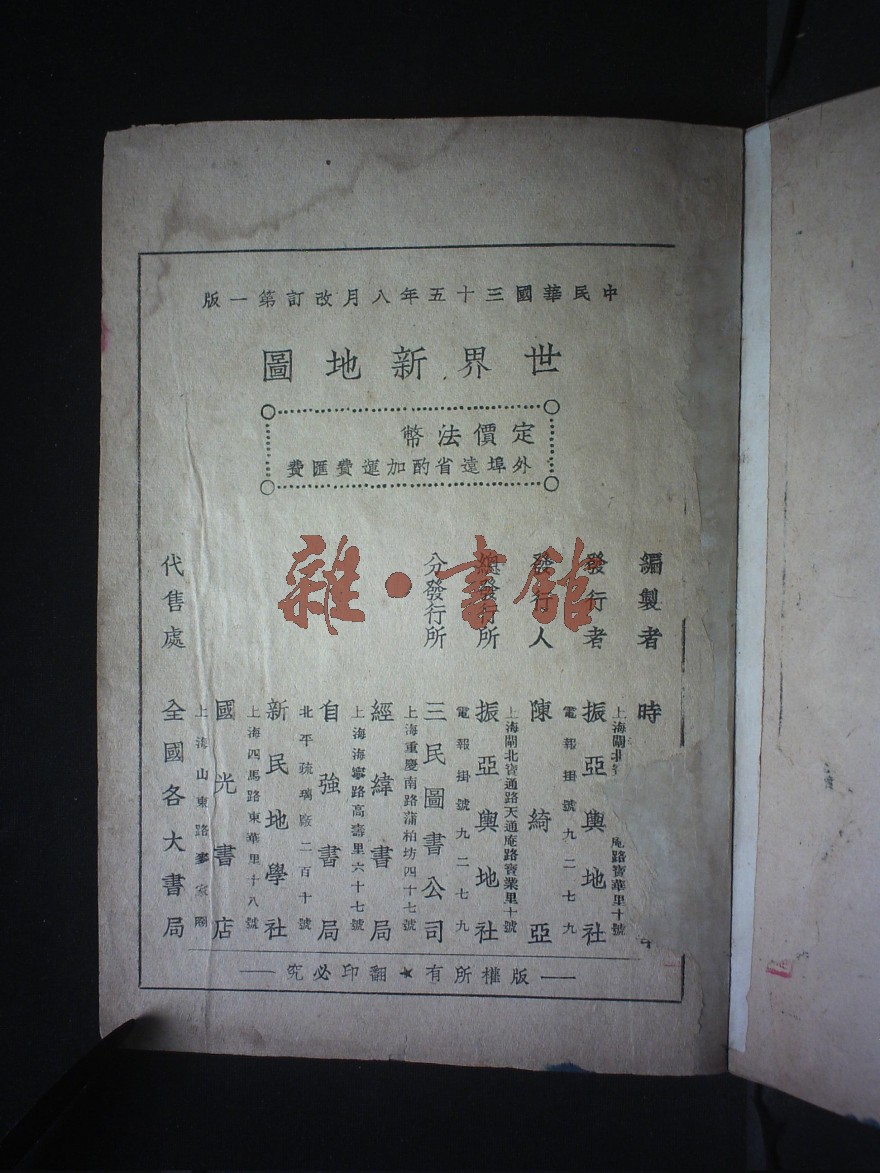 中民華國三十五年八月改訂第一版
世界新地圖
定價法幣
外埠遠省酌加運費匯費
編製者 時
發行者 振亞輿地社
上海閘北寶 庵路寶華里十號
電報掛號九二七九
發行人 陳綺亞
總發行所 振亞輿地社
上海閘北寶通路天通庵路寶業里十號
電報掛號九二七九
分發行所 三民圖書公司
上海重慶南路蒲柏坊四十七號
經緯書局
上海海寧路高壽里六十七號
自強書局
北平琉璃廠二百十號
新民地學社
上海四馬路東華里十八號
國光書店
上海山東路麥家圈
代售處 全國各大書局
版權所有★翻印必究
雜·書館